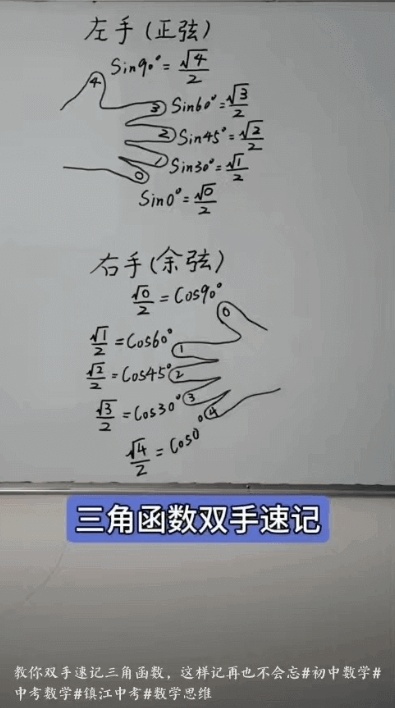 左手(正弦)
Sin90°=√4/2
4
3 Sin60°=√3/2
2 Sin45°=√2/2
1 Sin30°=√1/2
0
Sin0°=√0/2
右手(余弦)
√0/2=Cos90°
0
√1/2=Cos60° 1
√2/2=Cos45° 2
√3/2=Cos30° 3
4
√4/2=Cos0°
三角函数双手速记
教你双手速记三角函数,这样记再也不会忘#初中数学#
中考数学#镇江中考#数学思维